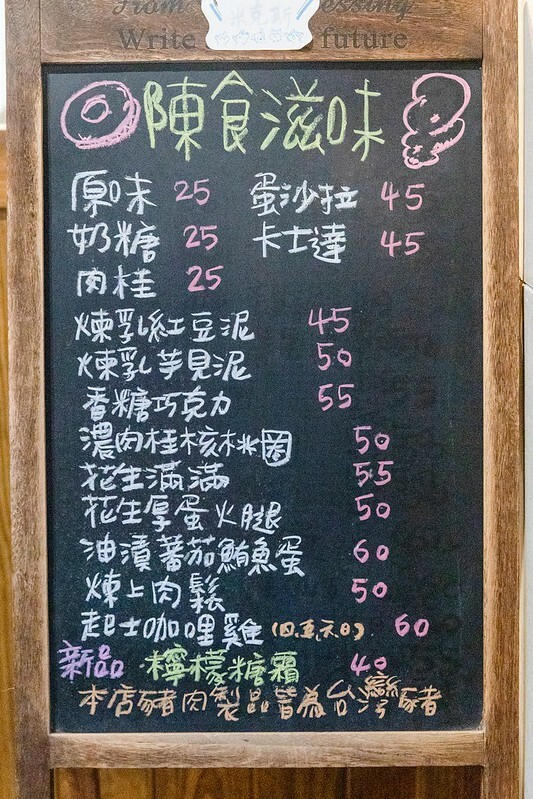 From
essing
米克斯
Write
future
陳食滋味
原味 25 蛋沙拉 45
奶糖 25 卡士達 45
肉桂 25
煉乳紅豆泥 45
煉乳芋見泥 50
香糖巧克力 55
濃肉桂核桃圈 50
花生滿滿 55
花生厚蛋火腿 50
油漬蕃茄鮪魚蛋 60
煉上肉鬆 50
起士咖哩雞(四.五.六.日) 60
新品 檸檬糖霜 40
本店豬肉製品皆為台灣豬者